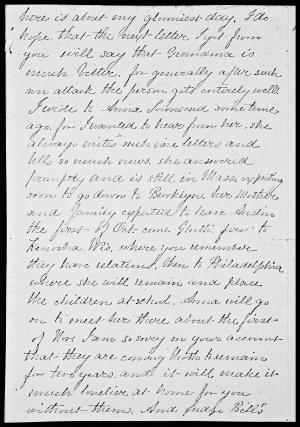 here is about my gloomiest day, I do
hope that the next letter I get from
you will say that Grandma is
much better, for generally after such
an attack the person gets entirely well.
I wrote to Anna Townsend some time
ago, for I wanted to hear from her, she
always writes such nice letters and
tell so much news. she answered
promptly and is still in Mass, expecting
soon to go down to Brooklyn. her Mother
and family expected to leave Austin
the first of Oct. come North, first to
Kenosha Wis, where you remember
they have relations, then to Philadelphia
where she will remain and place
the children at school. Anna will go
on to meet her there about the first
of Nov. I am so sorry on your account
that they are coming North to remain
for two years. and it will make it
much lonelier at home for you
without them. And Judge Bell's